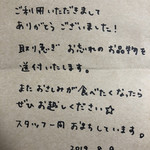 ご利用いただきまして
ありがとうございました!
取り急ぎ お忘れの お品物を
送付いたします。
また おさしみが 食べたくなったら
ぜひ お越しください☆
スタッフ一同 おまちしています。
2019. 8. 9